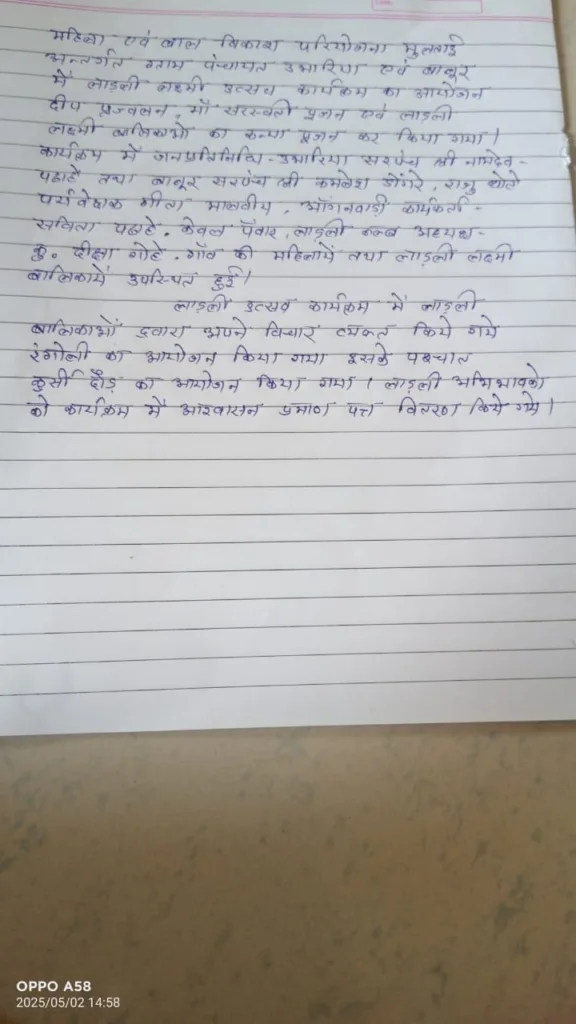 महिला एवं बाल विकास परियोजना मुलताई
अन्तर्गत ग्राम पंचायत उभारिया एवं बानूर
में लाड़ली लक्ष्मी उत्सव कार्यक्रम का आयोजन
दीप प्रज्वलन, माँ सरस्वती पूजन एवं लाड़ली
लक्ष्मी बालिकाओं का कन्या पूजन कर किया गया।
कार्यक्रम में जनप्रतिनिधि-उभारिया सरपंच श्री नामदेव-
पठाहे तथा बानूर सरपंच श्री कमलेश डोंगरे, राजु
पर्यवेक्षक गीता मालवीय, आँगनवाड़ी कार्यकर्ता-
सविता पठाहे, केवल पँवार, लाड़ली क्लब अध्यक्ष-
कु. दीक्षा गोहे, गाँव की महिलायें तथा लाड़ली लक्ष्मी
बालिकायें उपस्थित हुई।
लाड़ली उत्सव कार्यक्रम में लाड़ली
बालिकाओं द्वारा अपने विचार व्यक्त किये गये
रंगोली का आयोजन किया गया इसके पश्चात
कुर्सी दौड़ का आयोजन किया गया। लाड़ली अभिभावको
को कार्यक्रम में आश्वासन प्रमाण पत्र वितरण किये गये।
OPPO A58
2025/05/02 14:58